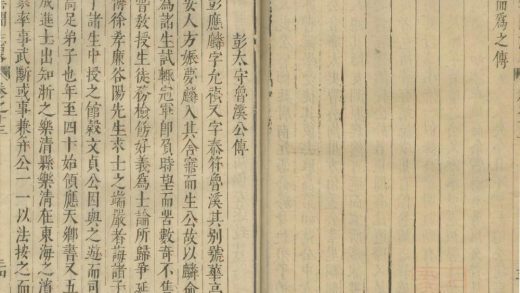 而為之傳
彭太守魯溪公傳
彭應麟字允禎又字泰符魯溪其別號華亭
安人方娠夢麟入其舍寤而生公故以麟命
為諸生試輒冠軍郡負時望而苦數奇不售
教授生徒務飭好義為士論所歸爭延
傅徐孝廉谷陽先生求士之端嚴者誨諸子
諸生中授之館穀文貞公因與之遊而司
高足弟子也年至四十始領應天鄉書又五
成進士出知浙之樂清縣樂清在東海之濱
豪率事武斷或事兼并公一一以法按之而
卷之十三